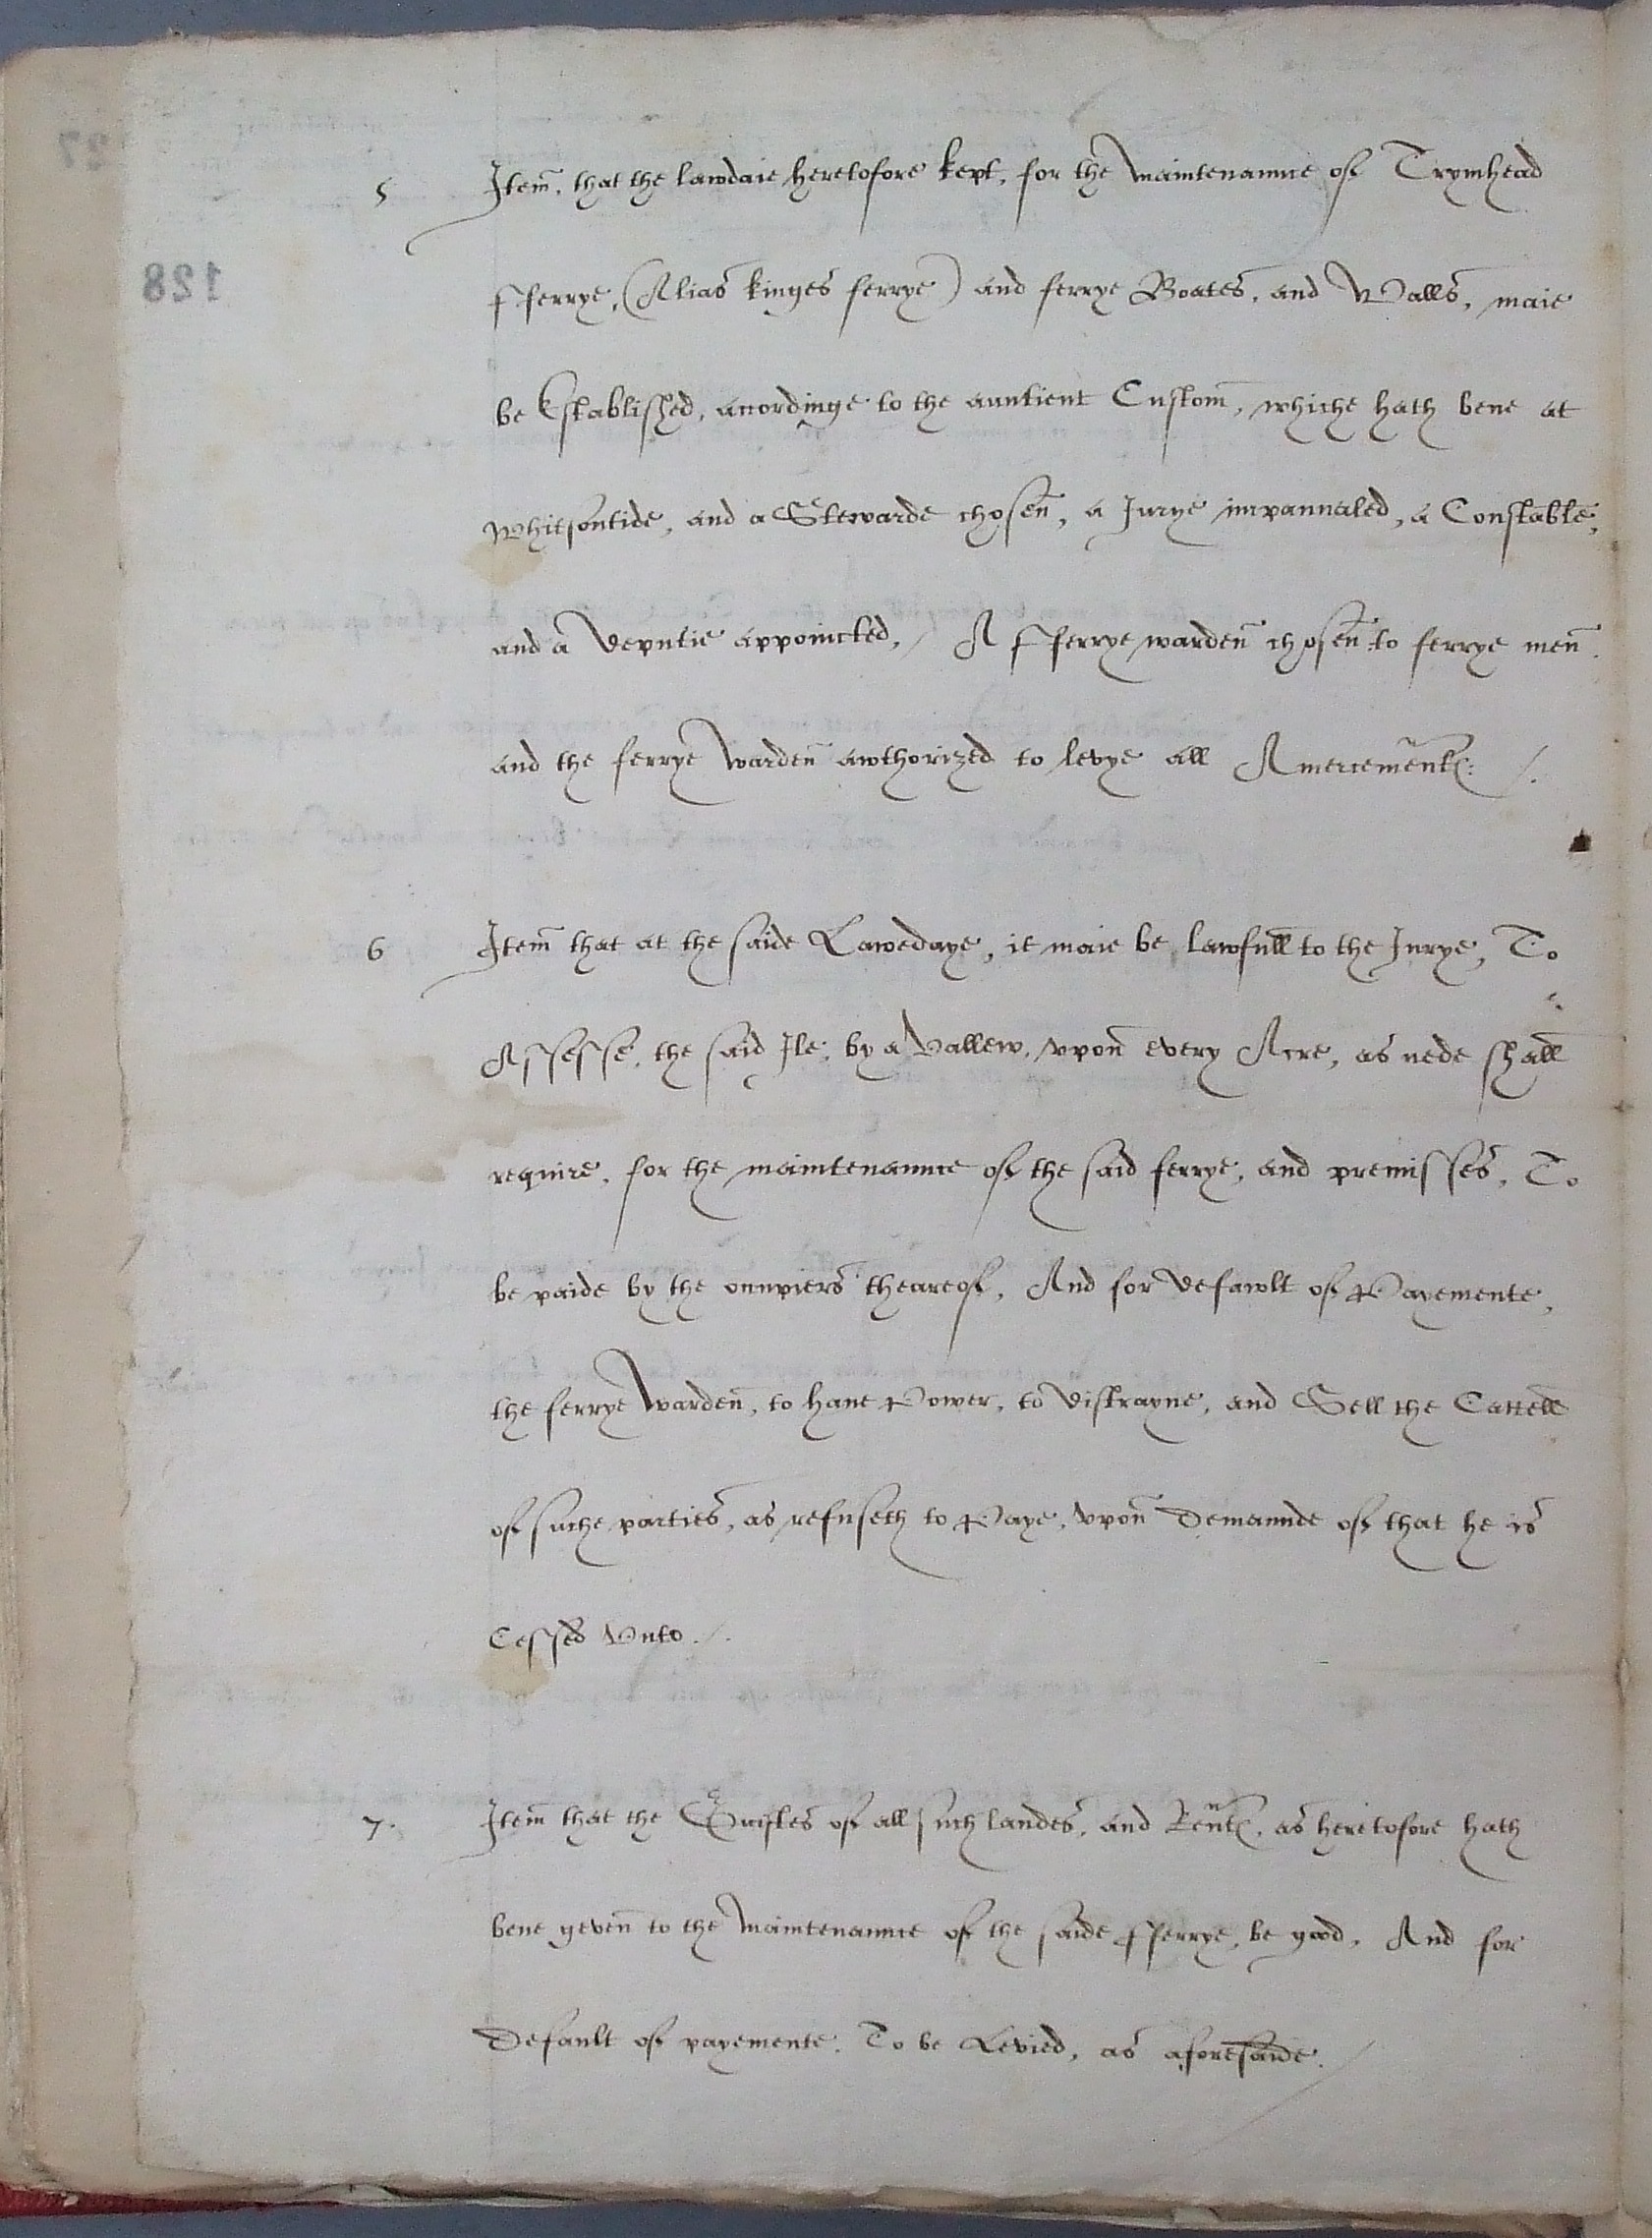 5 Item, that the lawdaie heretofore kept, for the Maintenance of Trymhead
fferrye, (Alias kinges ferrye) and ferrye Boates, and Walls, maie
be Established, accordinge to the auntient Custom, whiche hath bene at
Whitsontide, and a Stewarde chosen, a Jurye impannaled, a Constable,
and a deputie appoincted, / A fferrye warden chosen to ferrye men
and the ferrye Warden awthorized to levye all Amercements: /.
6 Item that at the saide Lawedaye, it maie be lawfull to the Jurye, To
Assesse, the said Ile, by a Vallew, vpon every Acre, as nede shall
require, for the maintenance of the said ferrye, and premisses, To
be paide by the occupiers theareof, And for defawlt of Payemente,
the ferrye Warden, to haue Power, to distrayne, and Sell the Cattell
of suche parties, as refuseth to Paye, vpon Demaunde of that he is
Cessed Vnto /.
7. Item that the Guiftes of all such landes, and Rents, as heretofore hath
bene geven to the Maintenance of the saide fferrye, be good, And for
Default of payemente, To be Levied, as aforesaide. /
128